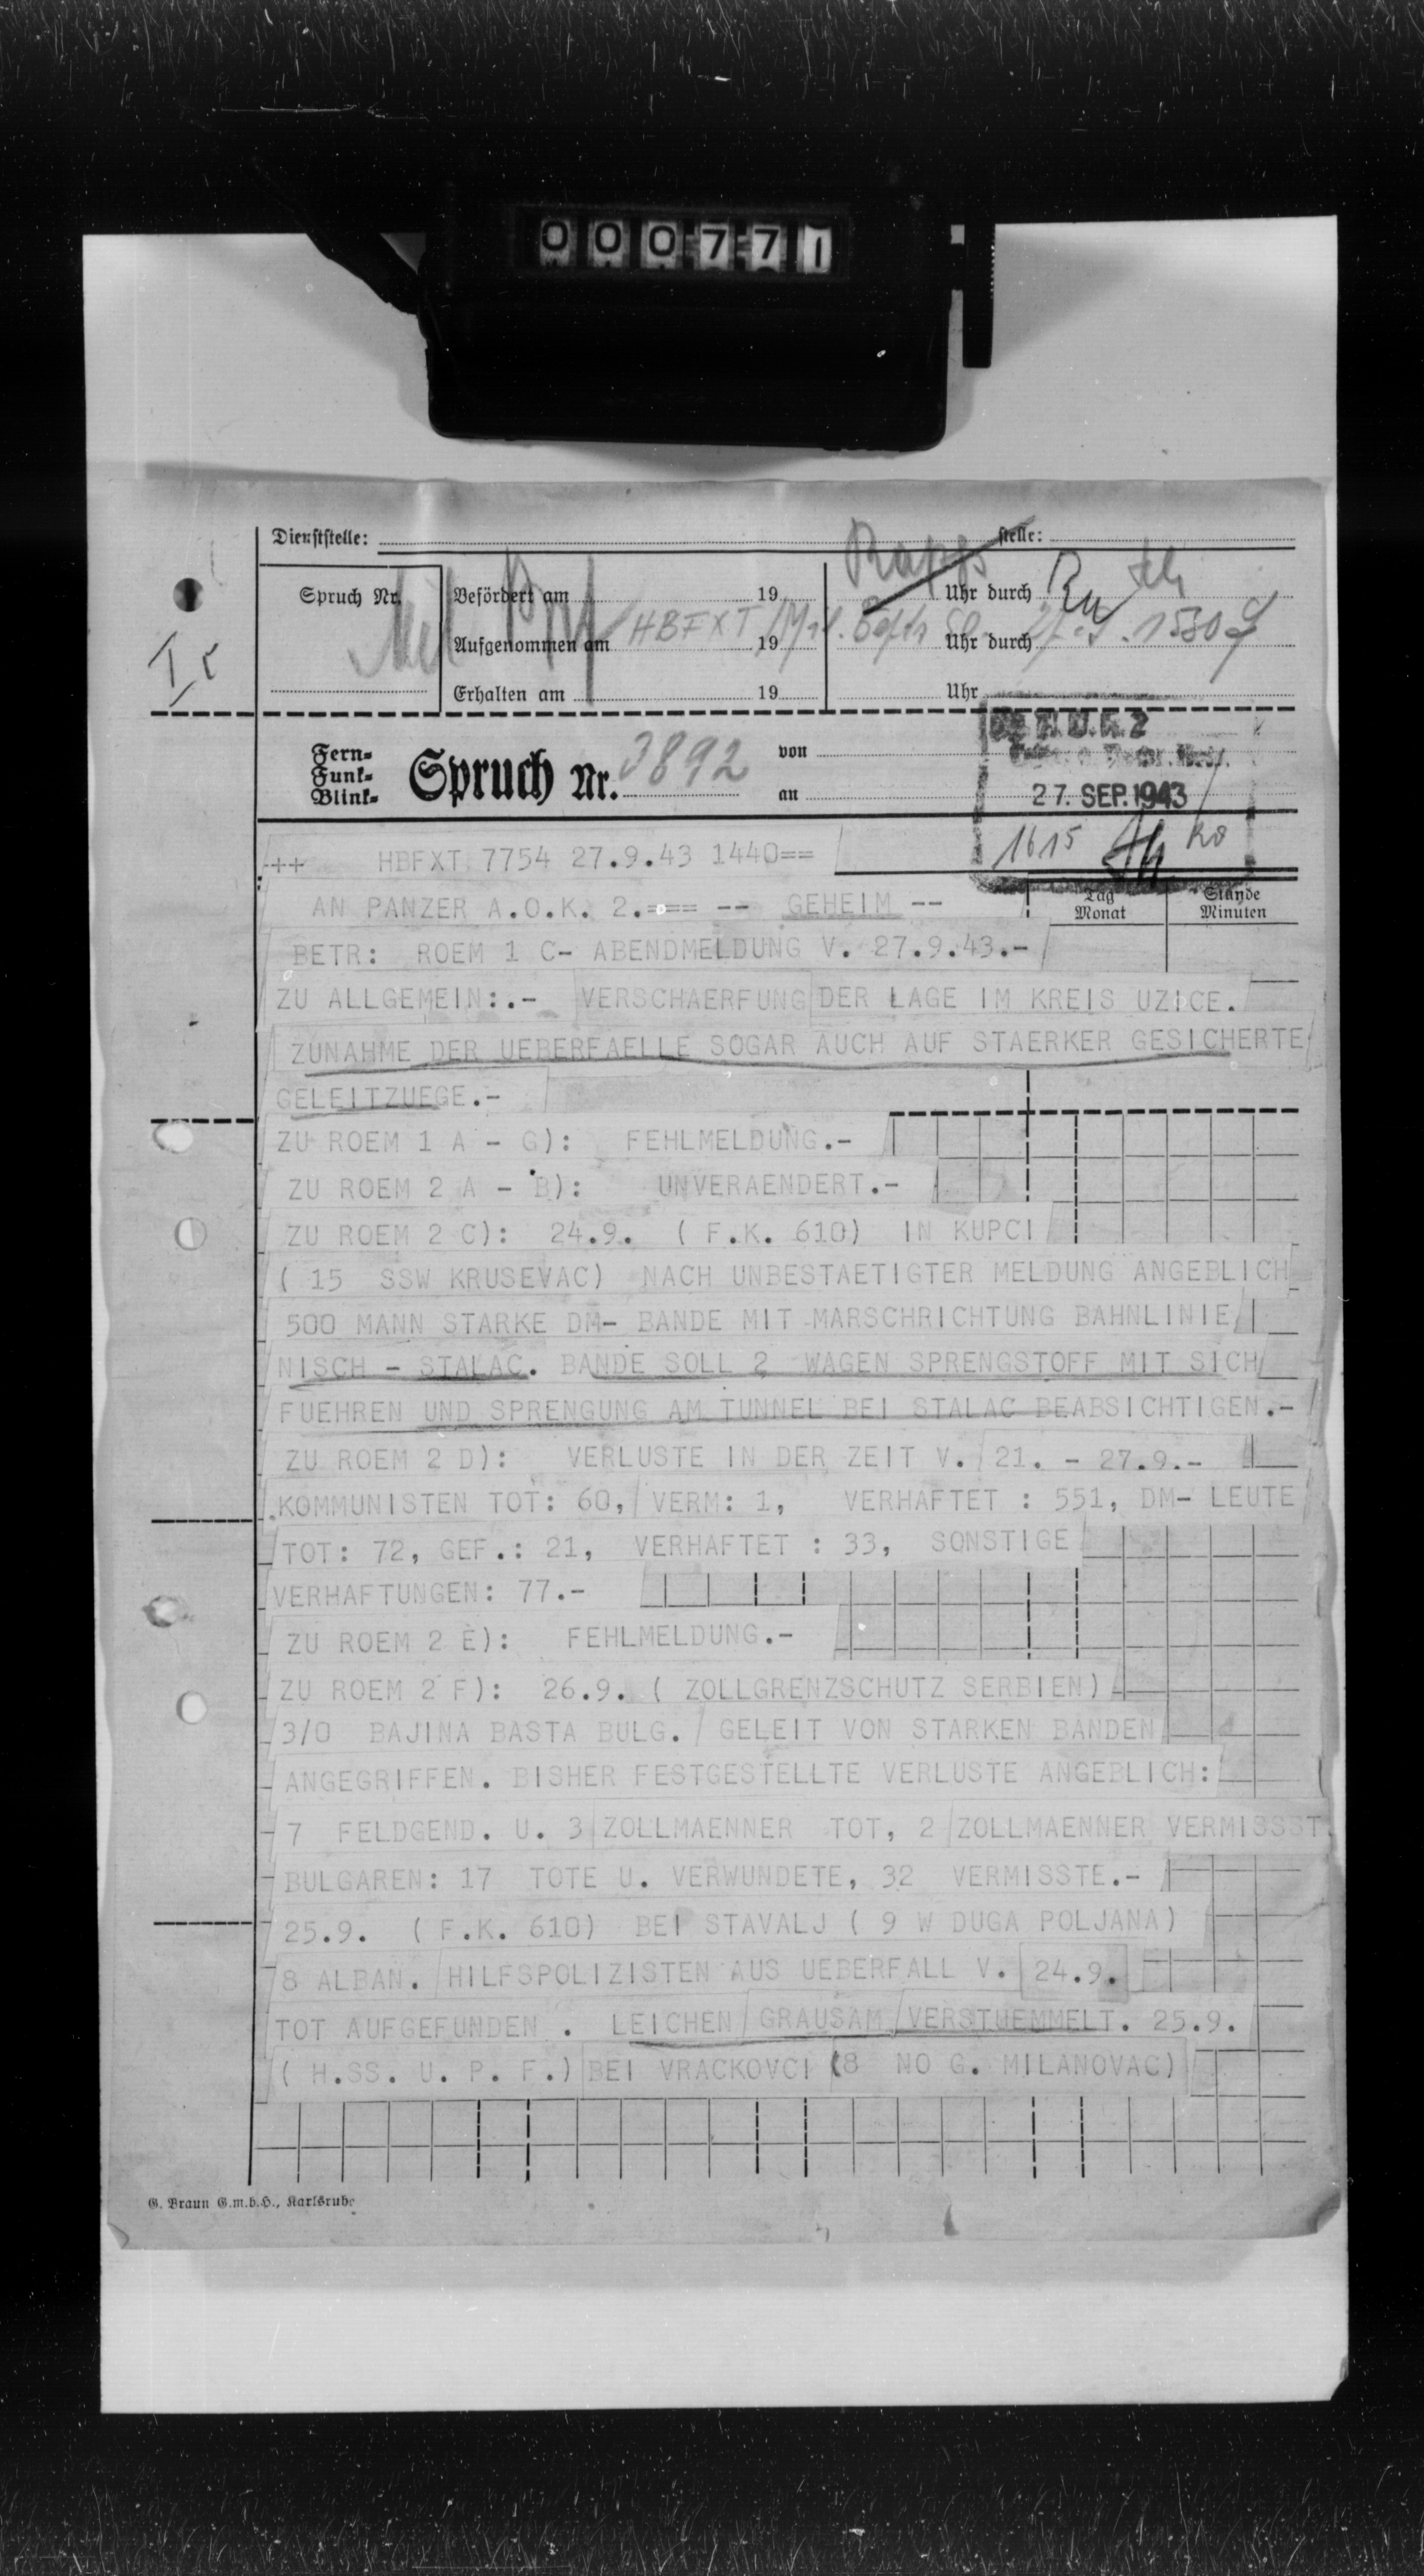 000771
Dienststelle: stelle:
Spruch Nr. Befördert am 19 Uhr durch
Aufgenommen am HBFXT 19 Uhr durch 1530
Erhalten am 19 Uhr
I c
Fern-
Funk-
Blink-
Spruch Nr. 3892 von
an
27. SEP. 1943
1615
++ HBFXT 7754 27.9.43 1440==
Tag Stunde
Monat Minuten
AN PANZER A.O.K. 2.=== -- GEHEIM --
BETR: ROEM 1 C- ABENDMELDUNG V. 27.9.43.-
ZU ALLGEMEIN:.- VERSCHAERFUNG DER LAGE IM KREIS UZICE.
ZUNAHME DER UEBERFAELLE SOGAR AUCH AUF STAERKER GESICHERTE
GELEITZUEGE.-
ZU ROEM 1 A - G): FEHLMELDUNG.-
ZU ROEM 2 A - B): UNVERAENDERT.-
ZU ROEM 2 C): 24.9. ( F.K. 610) IN KUPCI
( 15 SSW KRUSEVAC) NACH UNBESTAETIGTER MELDUNG ANGEBLICH
500 MANN STARKE DM- BANDE MIT MARSCHRICHTUNG BAHNLINIE
NISCH - STALAC. BANDE SOLL 2 WAGEN SPRENGSTOFF MIT SICH
FUEHREN UND SPRENGUNG AM TUNNEL BEI STALAC BEABSICHTIGEN.-
ZU ROEM 2 D): VERLUSTE IN DER ZEIT V. 21. - 27.9.-
KOMMUNISTEN TOT: 60, VERM: 1, VERHAFTET : 551, DM- LEUTE
TOT: 72, GEF.: 21, VERHAFTET : 33, SONSTIGE
VERHAFTUNGEN: 77.-
ZU ROEM 2 E): FEHLMELDUNG.-
ZU ROEM 2 F): 26.9. ( ZOLLGRENZSCHUTZ SERBIEN)
3/O BAJINA BASTA BULG. GELEIT VON STARKEN BANDEN
ANGEGRIFFEN. BISHER FESTGESTELLTE VERLUSTE ANGEBLICH:
7 FELDGEND. U. 3 ZOLLMAENNER TOT, 2 ZOLLMAENNER VERMISSST.
BULGAREN: 17 TOTE U. VERWUNDETE, 32 VERMISSTE.-
25.9. ( F.K. 610) BEI STAVALJ ( 9 W DUGA POLJANA)
8 ALBAN. HILFSPOLIZISTEN AUS UEBERFALL V. 24.9.
TOT AUFGEFUNDEN . LEICHEN GRAUSAM VERSTUEMMELT. 25.9.
( H.SS. U. P. F.) BEI VRACKOVCI (8 NO G. MILANOVAC)
G. Braun G.m.b.H., Karlsruhe